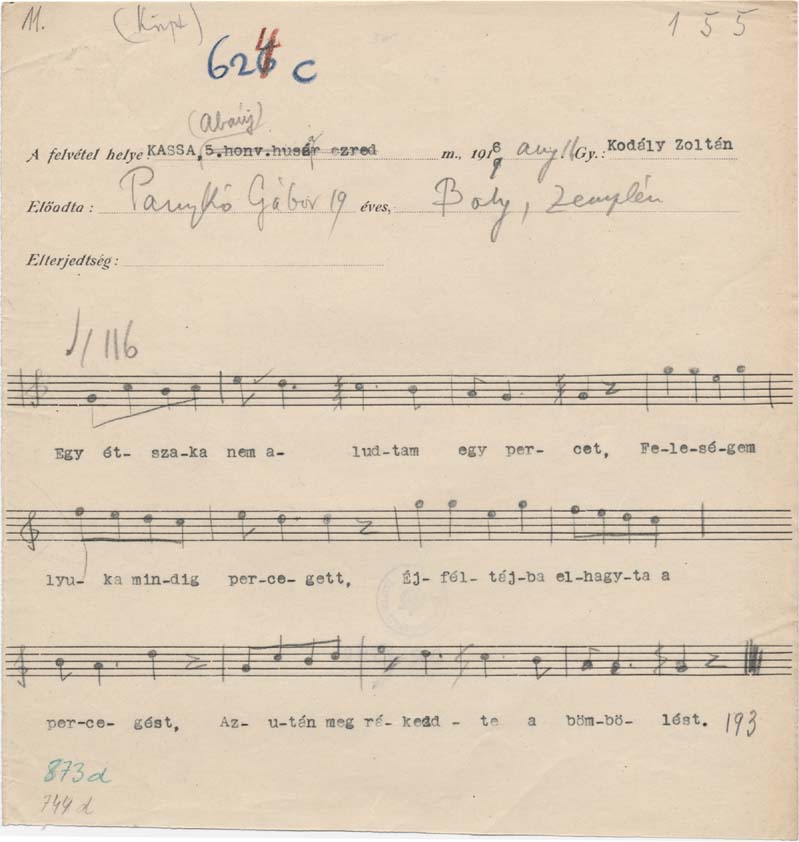 11. (Közt) 155
624 c
(Abaúj)
A felvétel helye KASSA, 5.honv.huszár ezred m., 1916 aug 16 Gy.: Kodály Zoltán
Előadta: Panykó Gábor 19 éves, Boly, Zemplén
Elterjedtség:
116
Egy ét- sza-ka nem a- lud-tam egy per- cet, Fe-le-sé-gem
lyu- ka min-dig per-ce- gett, Éj- fél- táj-ba el-hagy-ta a
per-ce- gést, Az- u-tán meg rá- kezd - te a böm-bö- lést. 193
873d
744d